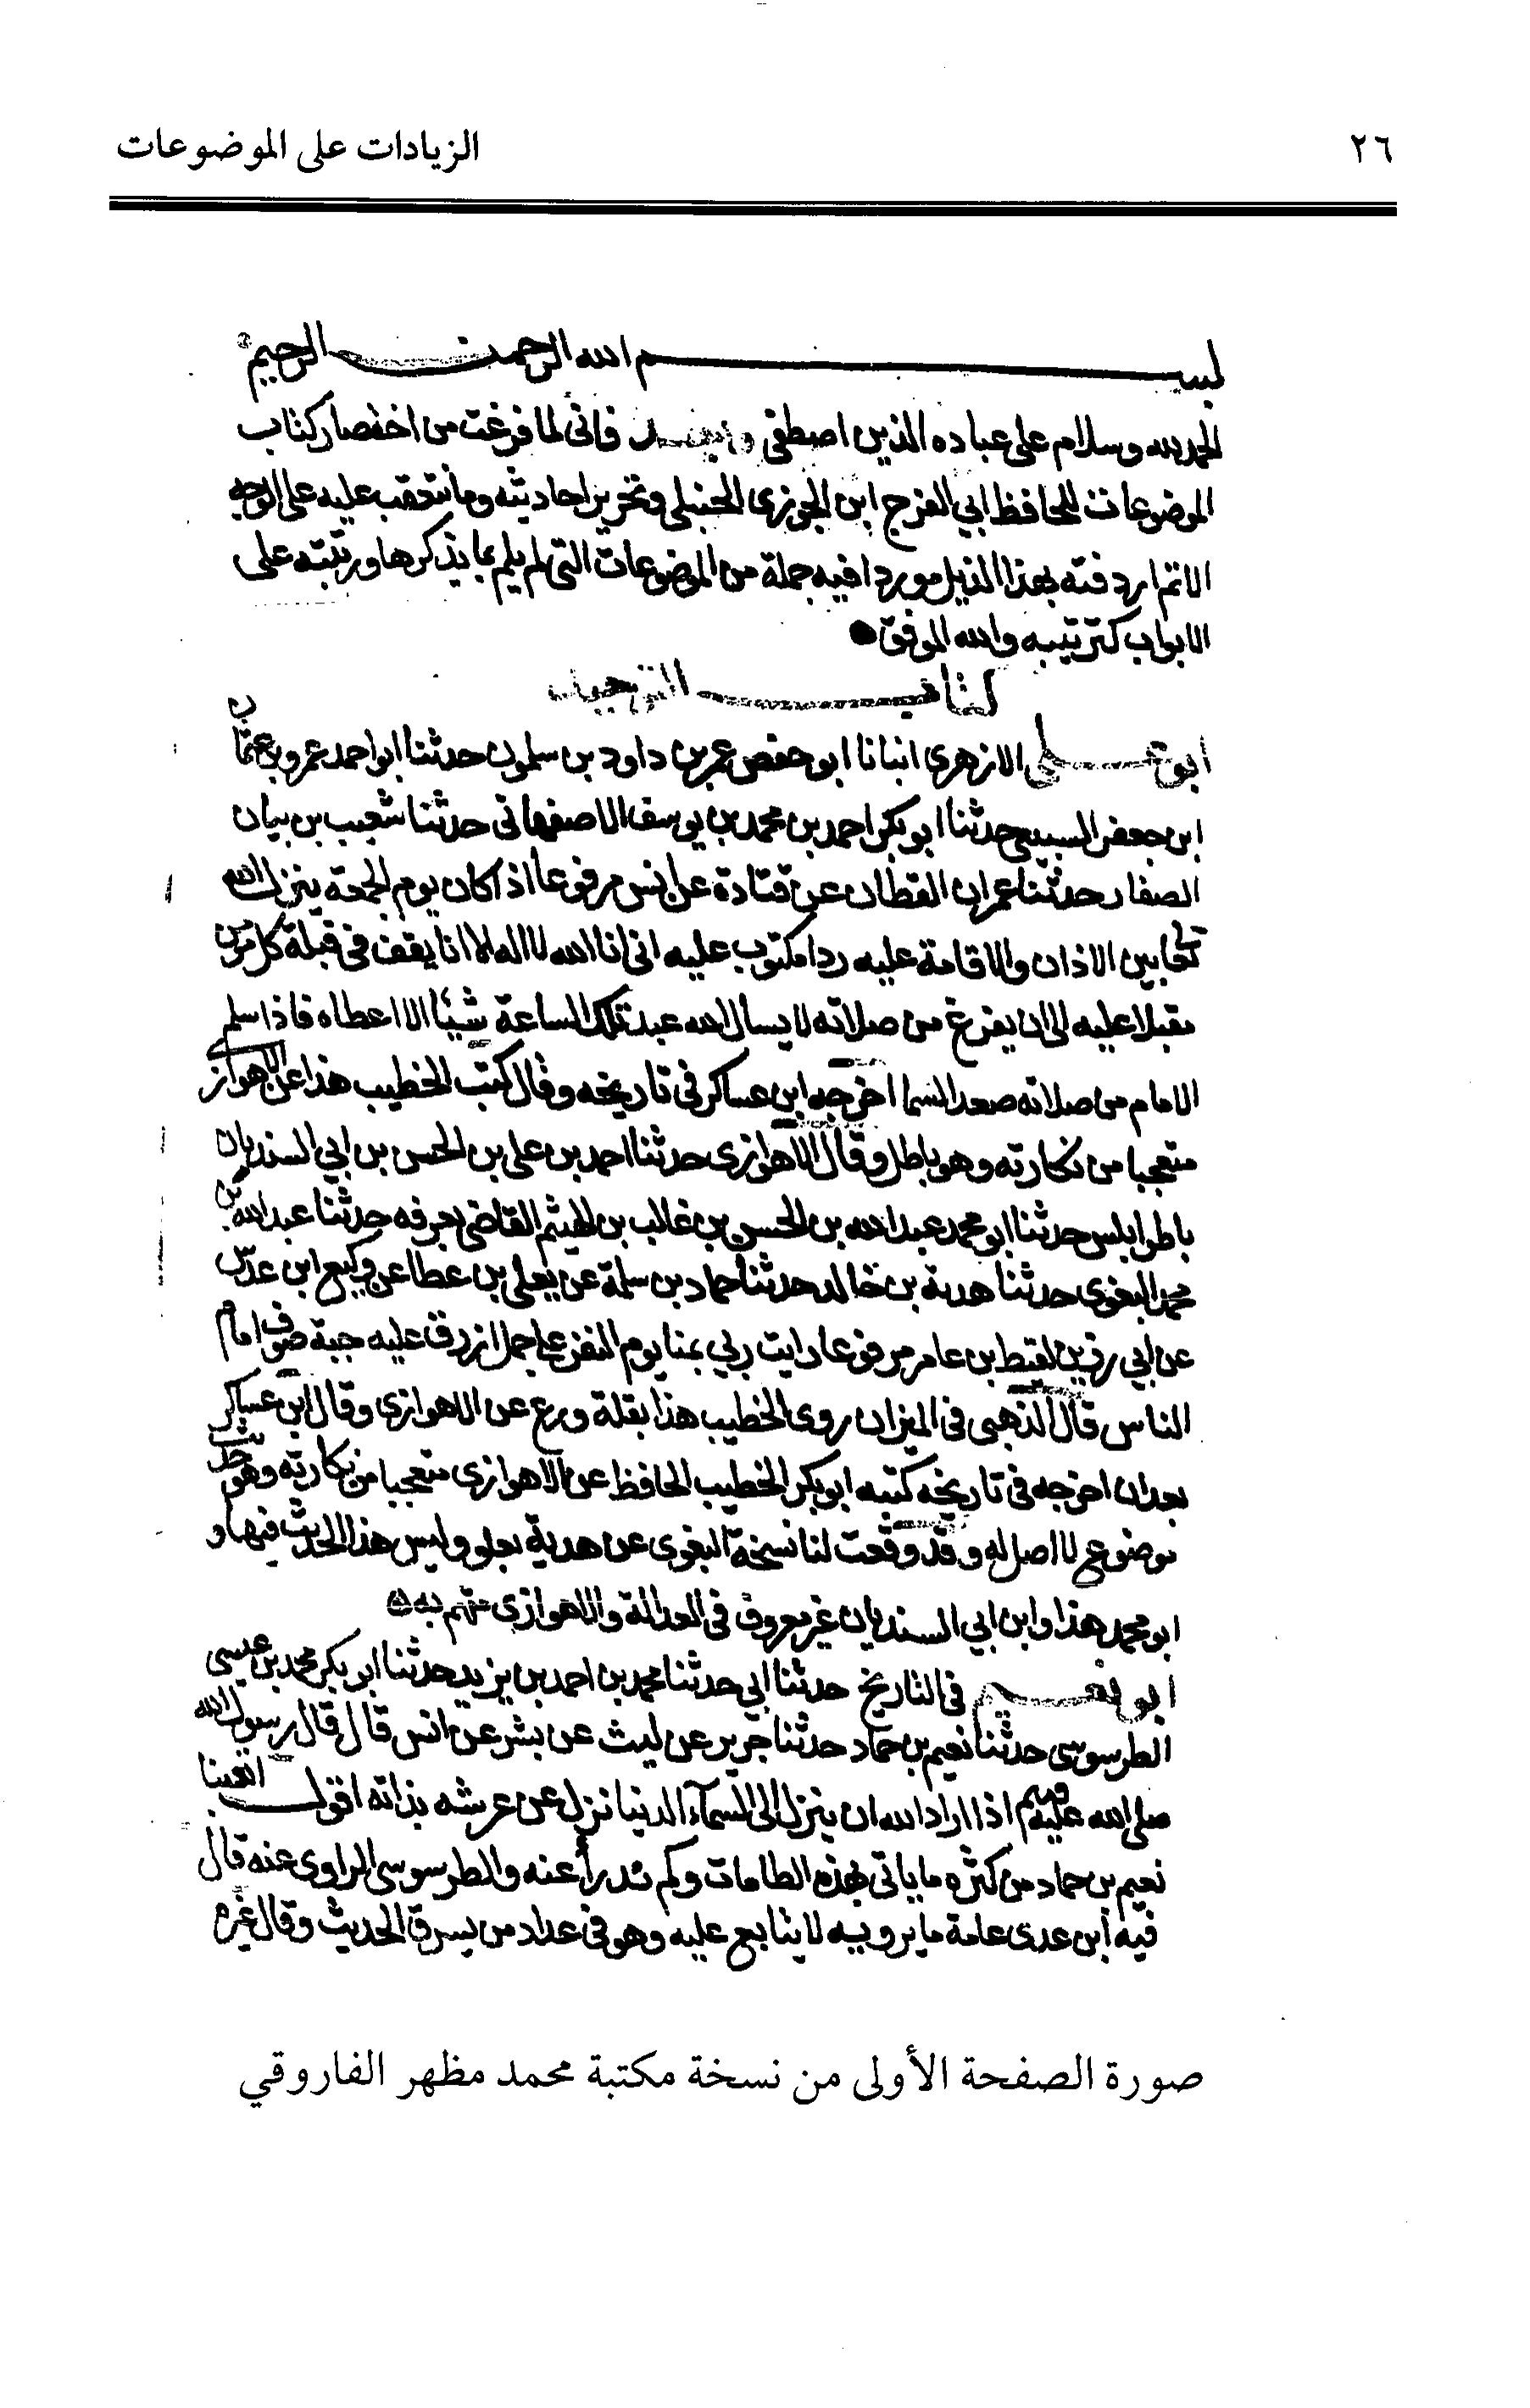 ٢٦
الزيادات على الموضوعات
بسم الله الرحمن الرحيم
الحمد لله وسلام على عباده الذين اصطفى وبعد فانى لما فرغت من اختصار كتاب
الموضوعات للحافظ ابي الفرج ابن الجوزى الحنبلى وتحرير احاديثه وما يتعقب عليه على الوجه
الاتم اردفته بهذا الذيل موردا فيه جملة من الموضوعات التى لم يلم بما يذكرها ورتبته على
الابواب كترتيبه والله الموفق
كتاب التوحيد
ابو على الازهرى انبانا ابو حفص عمر بن داود بن سلمون حدثنا ابو احمد عمرو بن عثمان
ابن جعفر السبيعى حدثنا ابو بكر احمد بن محمد بن يوسف الاصفهانى حدثنا شعيب بن بيان
الصفار حدثنا عمران القطان عن قتادة عن انس مرفوعا اذا كان يوم الجمعة ينزل الله
تعالى بين الاذان والاقامة عليه ردا مكتوب عليه انى انا الله لا اله الا انا يقف فى قبلة كل مومن
مقبلا عليه الى ان يفرغ من صلاته لا يسال الله عبد تلك الساعة شيئا الا اعطاه فاذا سلم
الامام من صلاته صعد السما اخرجه ابن عساكر فى تاريخه وقال كتب الخطيب هذا عن الاهوازى
متعجبا من نكارته وهو باطل وقال الاهوازى حدثنا احمد بن على بن الحسن بن ابي السنديان
باطرابلس حدثنا ابو محمد عبد الله بن الحسن بن غالب بن الهيثم القاضى بعرفه حدثنا عبد الله بن
محمد البغوى حدثنا هدبة بن خالد حدثنا حماد بن سلمة عن يعلى بن عطا عن وكيع ابن عدس
عن ابي رزين لقيط بن عامر مرفوعا رايت ربي بمنا يوم النفر على جمل ازرق عليه جبة صوف امام
الناس قال الذهبى فى الميزان روى الخطيب هذا بقلة ورع عن الاهوازى وقال ابن عساكر
بعد ان اخرجه فى تاريخه كتبه ابو بكر الخطيب الحافظ عن الاهوازى متعجبا من نكارته وهو حديث
موضوع لا اصل له وقد وقعت لنا نسخة البغوى عن هدبة بعلو وليس هذا الحديث فيها و
ابو محمد هذا وابن ابي السنديان غير معروف فى العدالة والاهوازى متهم به
ابو نعيم فى التاريخ حدثنا ابي حدثنا محمد بن احمد بن يزيد حدثنا ابو بكر محمد بن عيسى
الطرسوسى حدثنا نعيم بن حماد حدثنا جرير عن ليث عن بشر عن انس قال قال رسول الله
صلى الله عليه وسلم اذا اراد الله ان ينزل الى السماء الدنيا نزل عن عرشه بذاته اقول اتعبنا
نعيم بن حماد من كثره ما ياتى بهذه الطامات وكم ندرأ عنه والطرسوسى الراوى عنه قال
فيه ابن عدى عامة ما يرويه لا يتابع عليه وهو فى عداد من يسرق الحديث وقال غيره
صورة الصفحة الأولى من نسخة مكتبة محمد مظهر الفاروقي